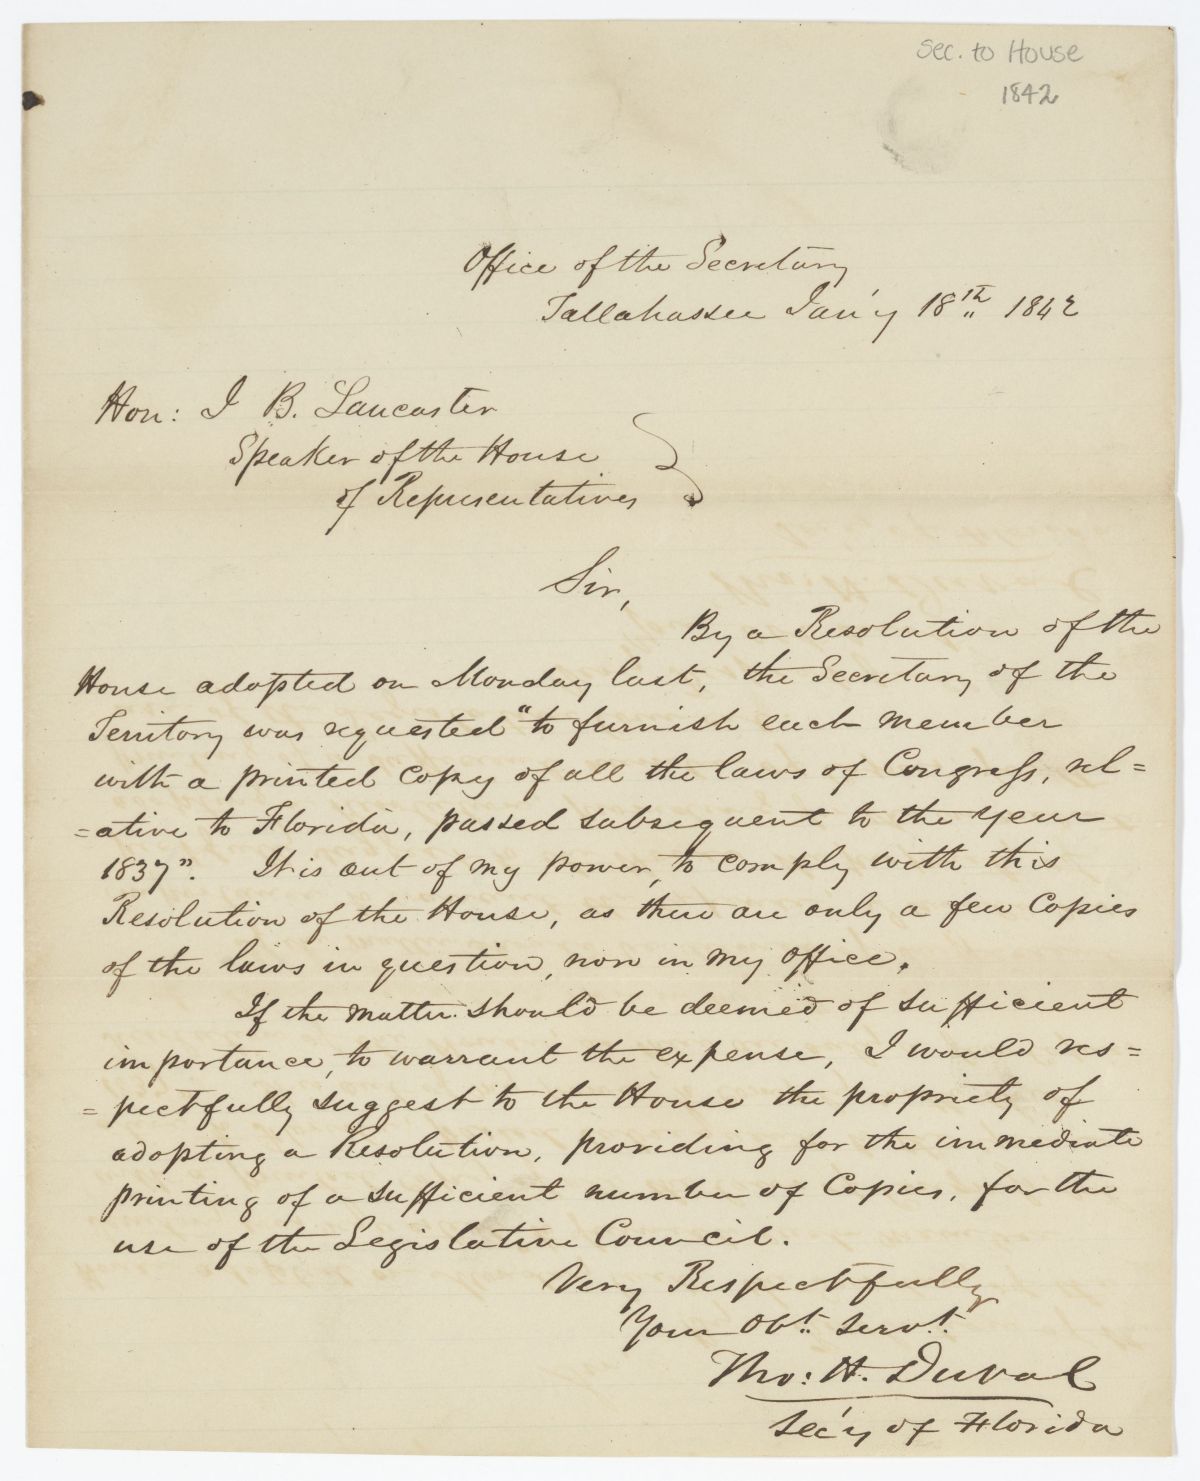 Sec. to House
1842
Office of the Secretary
Tallahassee Jan'y 18th 1842
Hon: J B. Lancaster
Speaker of the House
of Representatives
Sir,
By a Resolution of the
House adopted on Monday last, the Secretary of the
Territory was requested "to furnish each member
with a printed copy of all the laws of Congress, rel=
=ative to Florida, passed subsequent to the year
1837". It is out of my power, to comply with this
Resolution of the House, as there are only a few Copies
of the laws in question, now in my office.
If the matter should be deemed of sufficient
importance, to warrant the expense, I would res=
=pectfully suggest to the House the propriety of
adopting a Resolution, providing for the immediate
printing of a sufficient number of Copies, for the
use of the Legislative Council.
Very Respectfully
Your Obt. Servt.
Tho: H. Duval
Sec'y of Florida